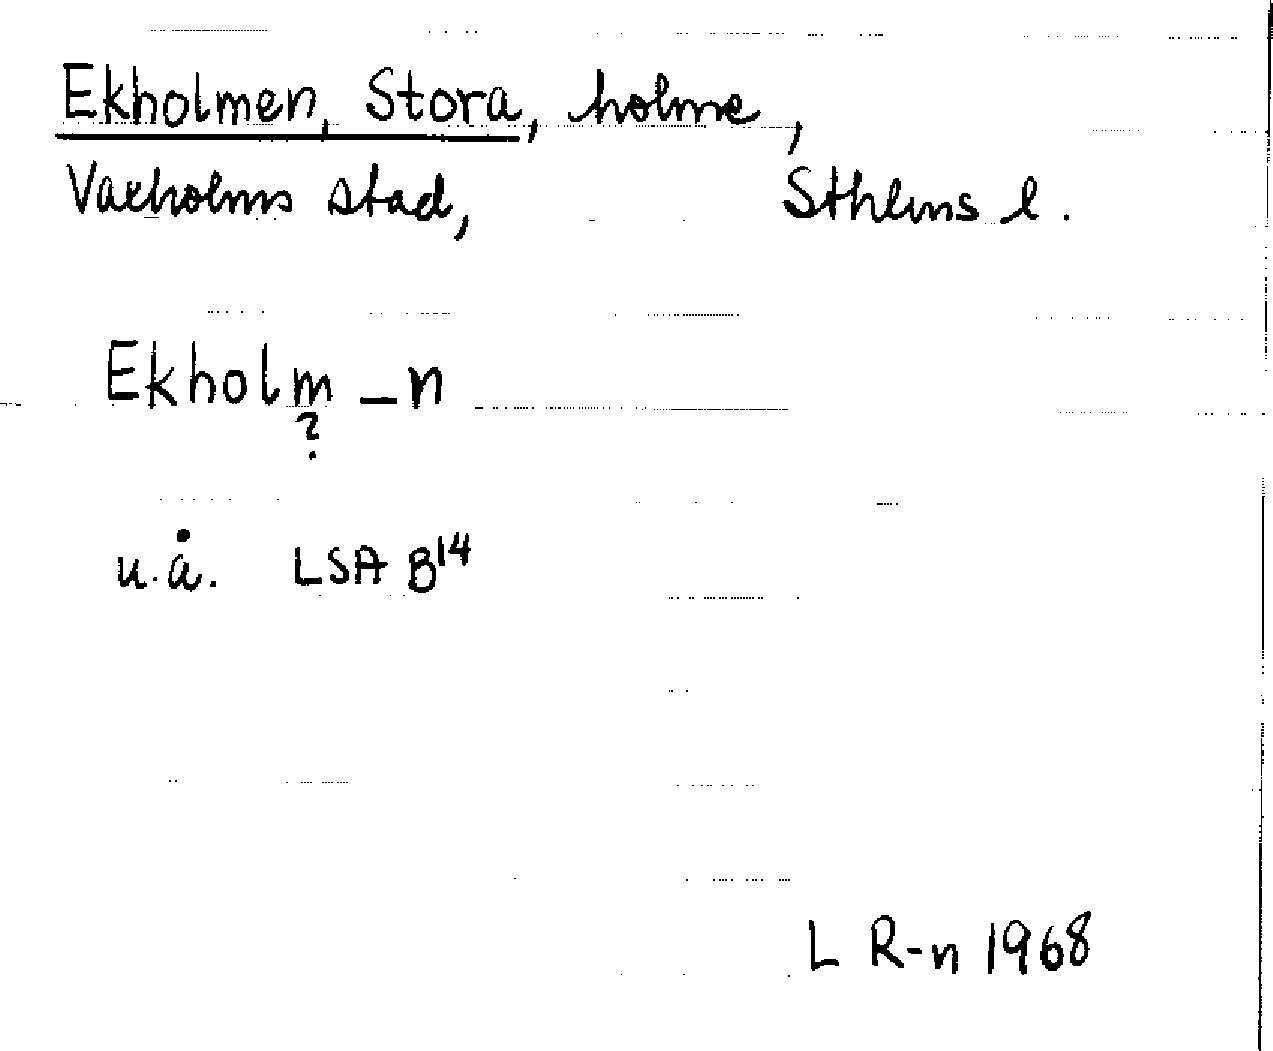 Ekholmen, Stora, holme,
Vaxholms stad, Sthlms l.
Ekholm _ n
?
u.å. LSA B14
L R-n 1968